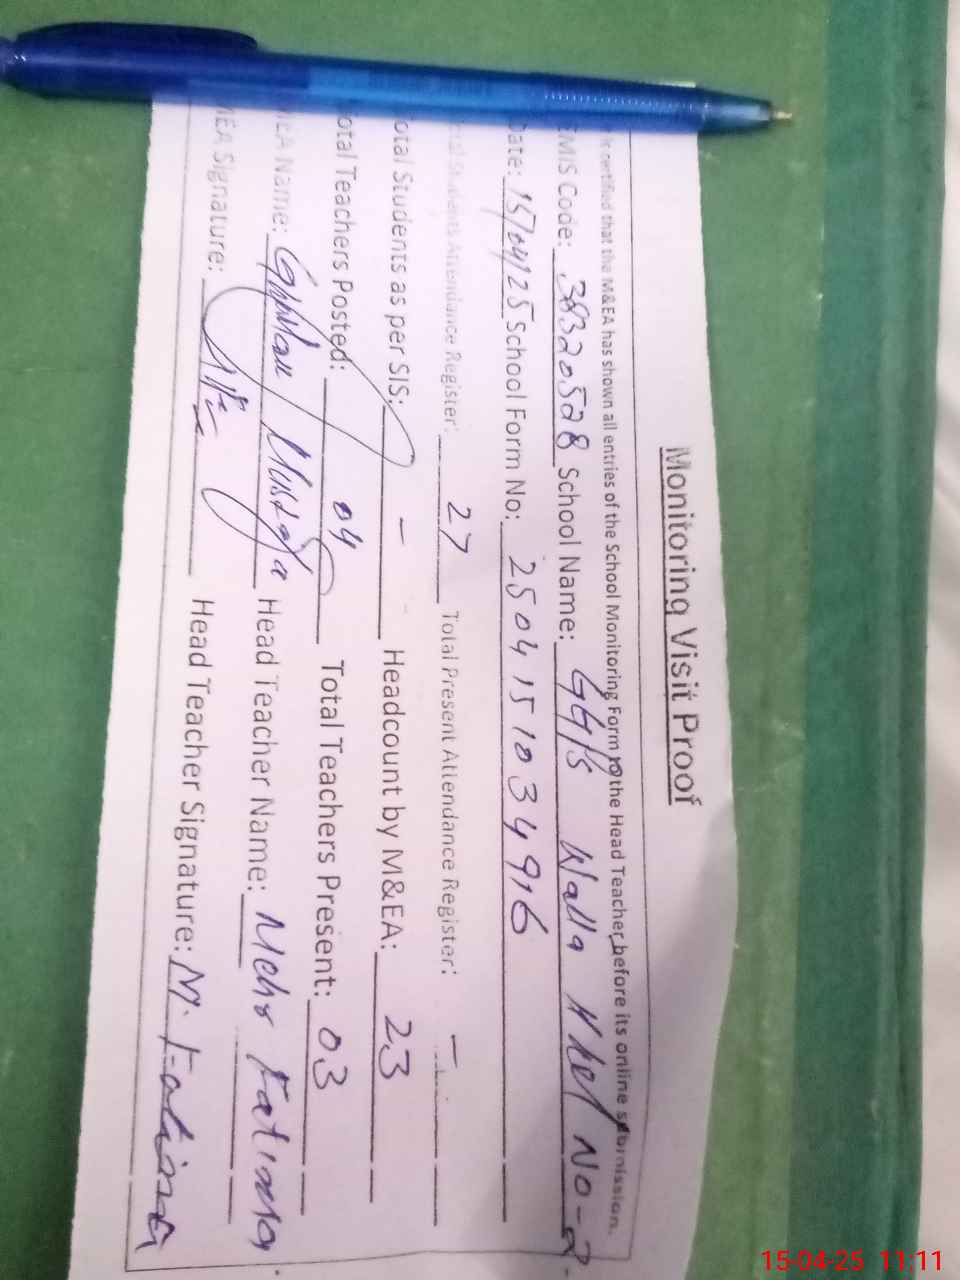 Monitoring Visit Proof
is certified that the M&EA has shown all entries of the School Monitoring Form to the Head Teacher before its online submission.
EMIS Code: 38320528 School Name: GGPS Walla Khel No-2
Date: 15/04/25 School Form No: 2504151034916
Total Students Attendance Register: 27 Total Present Attendance Register: -
Total Students as per SIS: - Headcount by M&EA: 23
Total Teachers Posted: 04 Total Teachers Present: 03
MEA Name: Ghulam Mustafa Head Teacher Name: Mehr Fatima
MEA Signature: Head Teacher Signature: M. Fatima
15-04-25 11:11